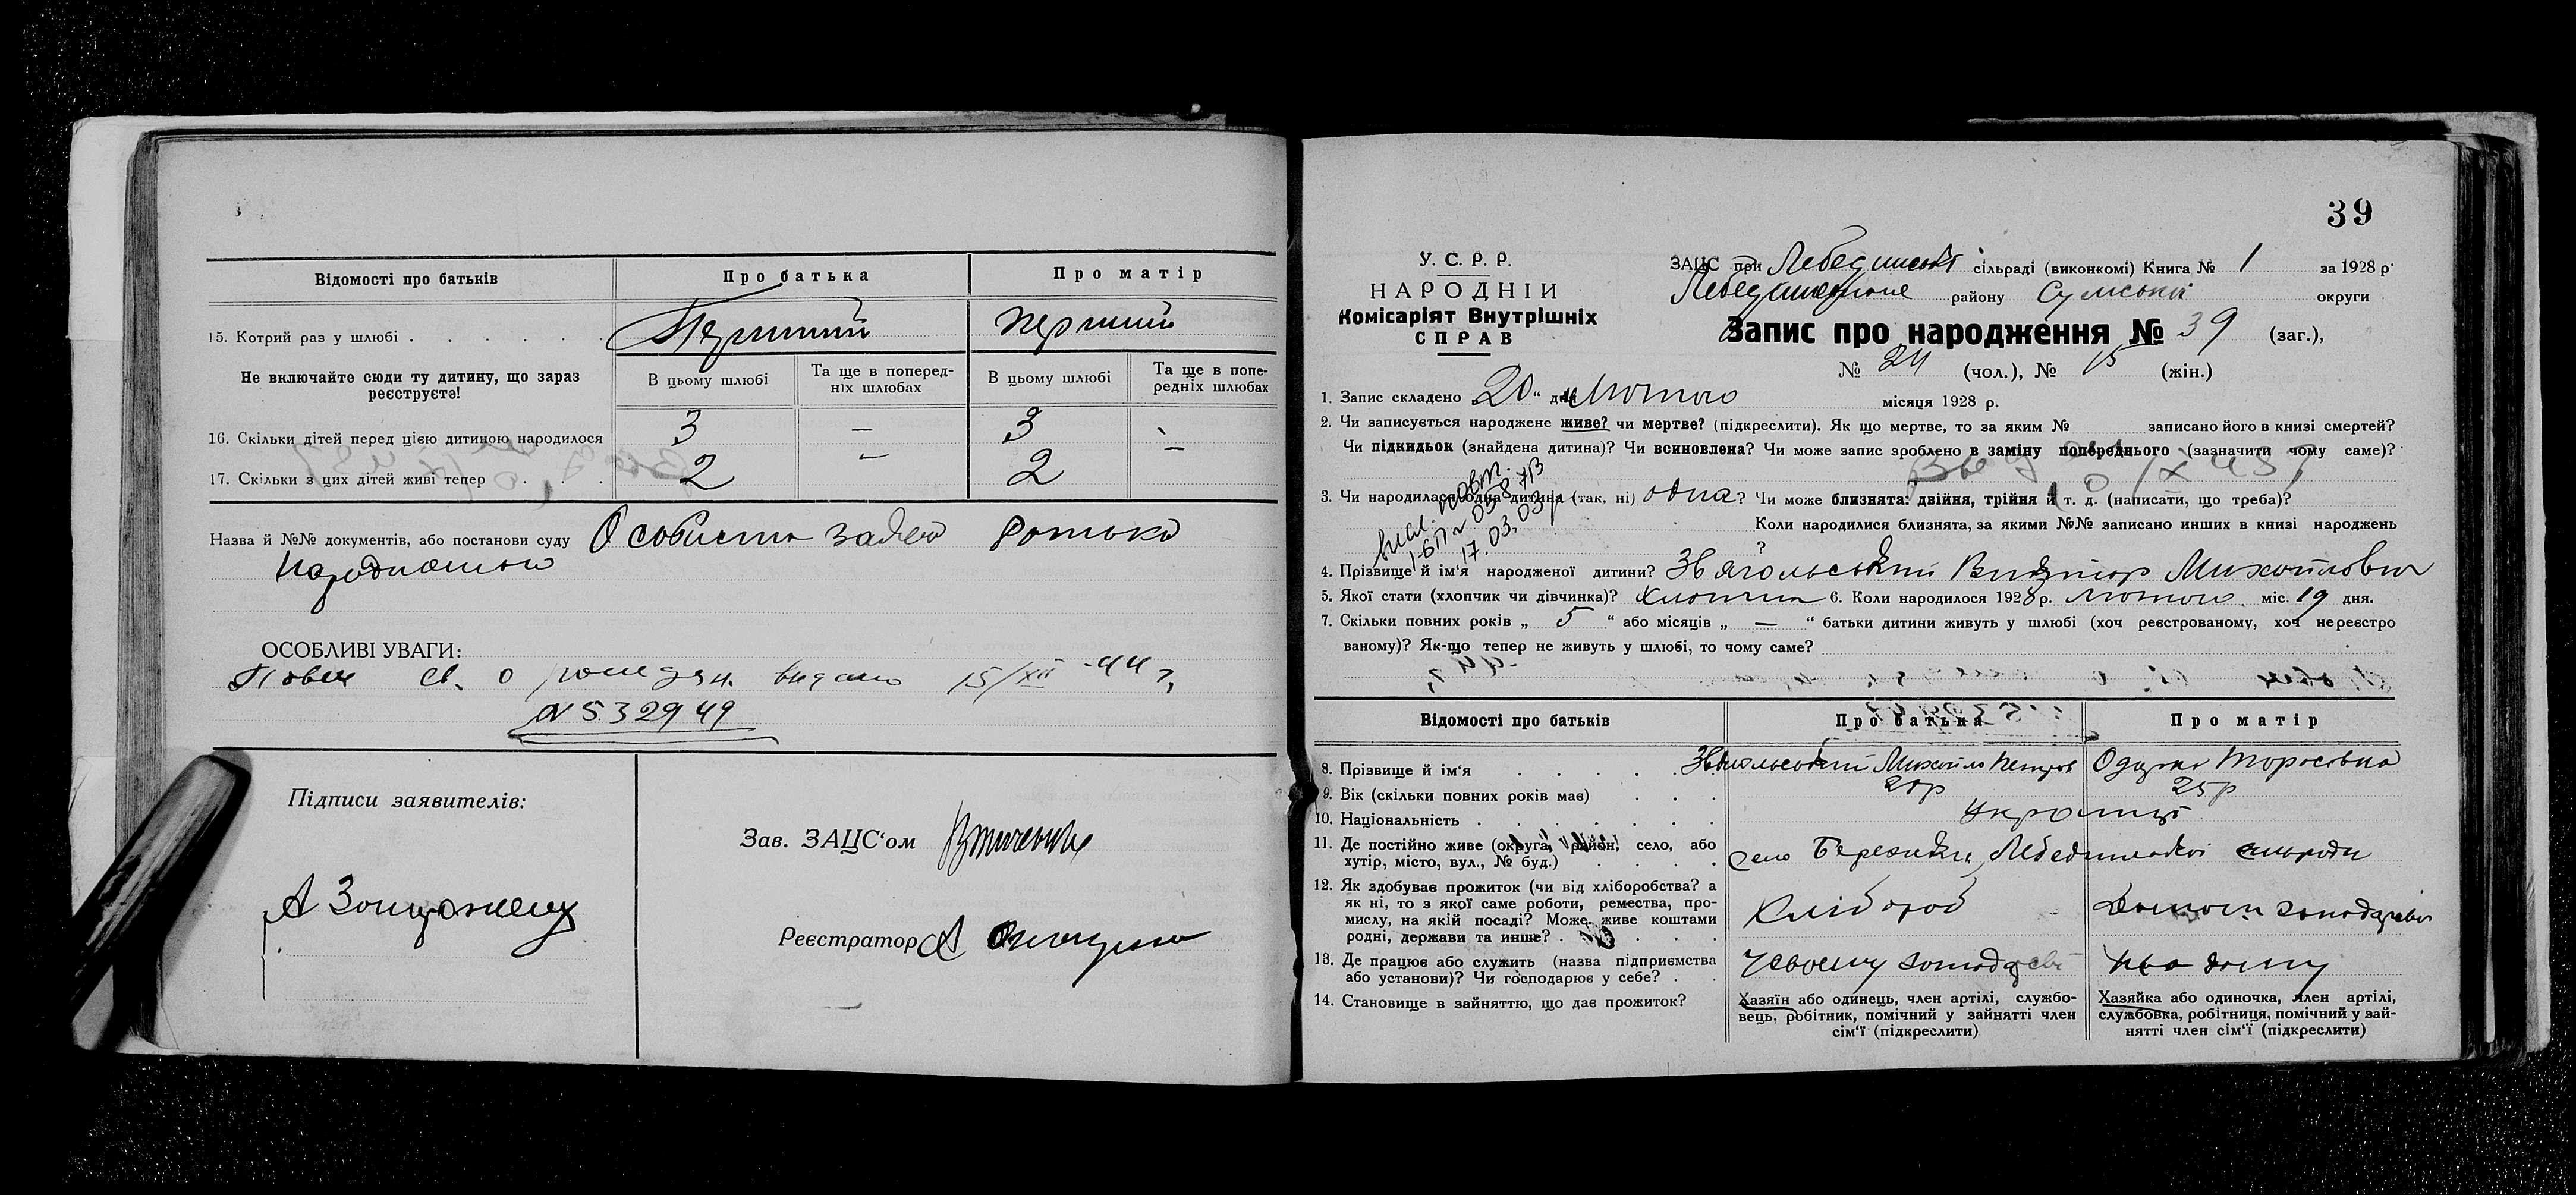 Відомості про батьків
Про батька
Про матір
15. Котрий раз у шлюбі
Перший
перший
Не включайте сюди ту дитину, що зараз реєструєте!
В цьому шлюбі
Та ще в попередніх шлюбах
В цьому шлюбі
Та ще в попередніх шлюбах
16. Скільки дітей перед цією дитиною народилося
3
—
3
17. Скільки з цих дітей живі тепер
2
—
2
—
Назва й №№ документів, або постанови суду Особиста заява батька
ОСОБЛИВІ УВАГИ:
св. о рожден. видано 15/XII -44 г.
N 532949
Підписи заявителів:
Зав. ЗАЦС'ом
Реєстратор
39
У. С. Р. Р.
НАРОДНІЙ
Комісаріят Внутрішніх
СПРАВ
ЗАЦС при Лебединській сільраді (виконкомі) Книга № 1 за 1928 р.
району Сумської округи
Запис про народження № 39 (заг.),
№ 24 (чол.), № 15 (жін.)
1. Запис складено „20“ дня Лютого місяця 1928 р.
2. Чи записується народжене живе? чи мертве? (підкреслити). Як що мертве, то за яким № записано його в книзі смертей?
Чи підкидьок (знайдена дитина)? Чи всиновлена? Чи може запис зроблено в заміну попереднього (зазначити чому саме)?
3. Чи народилася одна дитина (так, ні) одна? Чи може близнята: двійня, трійня й т. д. (написати, що треба)?
17.03.03
Коли народилися близнята, за якими №№ записано инших в книзі народжень
?
4. Прізвище й ім'я народженої дитини? Звягольський Виктор Михайлович
5. Якої стати (хлопчик чи дівчинка)? Хлопчик 6. Коли народилося 1928 р. лютого міс. 19 дня.
7. Скільки повних років „ 5 “ або місяців „ — “ батьки дитини живуть у шлюбі (хоч реєстрованому, хоч нереєстро
ваному)? Як-що тепер не живуть у шлюбі, то чому саме?
Відомості про батьків
Про батька
Про матір
8. Прізвище й ім'я
Звягольський Михайло Петров
Одарка Тарасовна
9. Вік (скільки повних років має)
25р
10. Національність
українці
11. Де постійно живе (округа, район, село, або
хутір, місто, вул., № буд.)
село Бережки, Лебединської сільради
12. Як здобуває прожиток (чи від хліборобства? а
як ні, то з якої саме роботи, ремества, про-
мислу, на якій посаді? Може живе коштами
родні, держави та инше?
Хлібороб
13. Де працює або служить (назва підприємства
або установи)? Чи господарює у себе?
дому
14. Становище в зайняттю, що дає прожиток?
Хазяїн або одинець, член артілі, службо-
вець, робітник, помічний у зайнятті член
сім'ї (підкреслити)
Хазяйка або одиночка, член артілі,
службовка, робітниця, помічний у зай-
нятті член сім'ї (підкреслити)